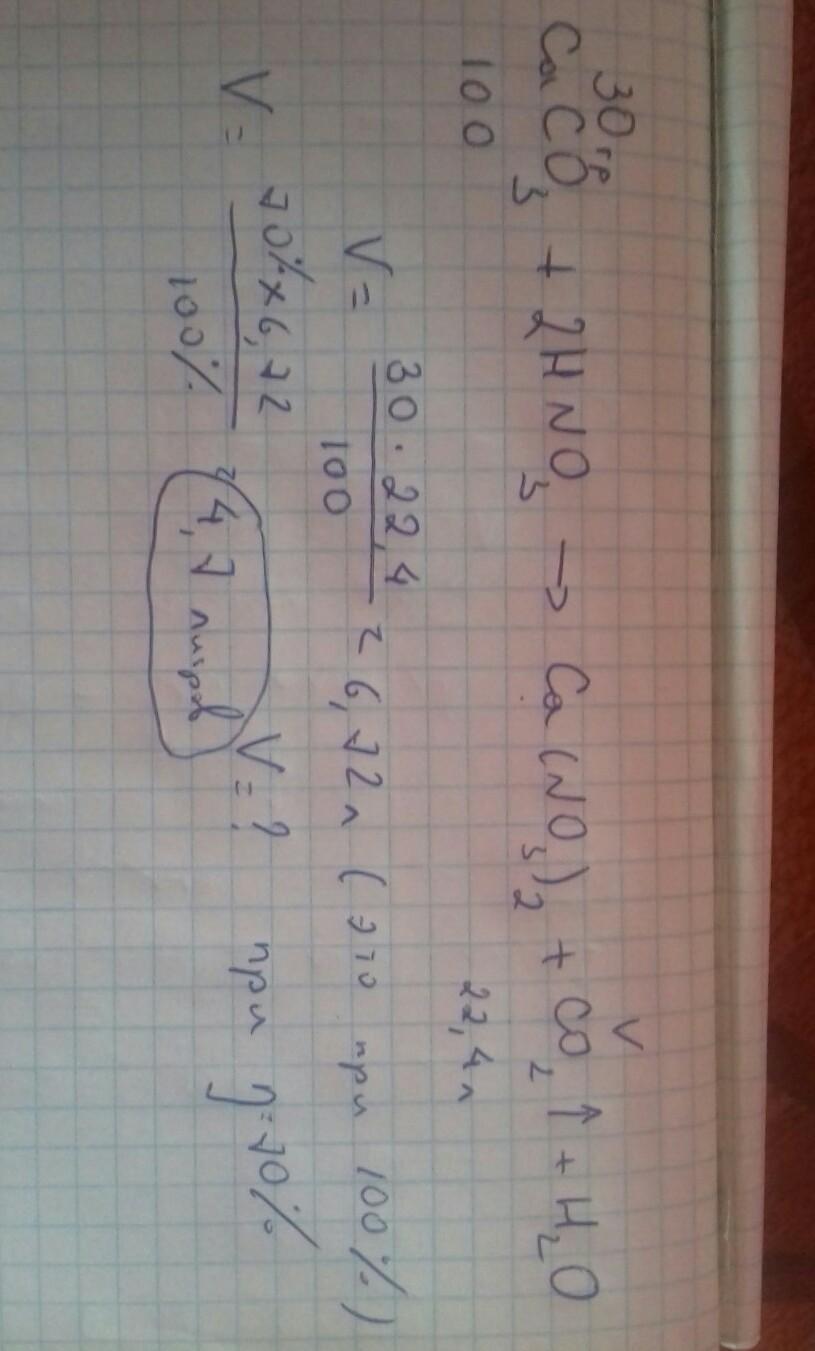 30 гр V
CaCO3 + 2HNO3 → Ca(NO3)2 + CO2 ↑ + H2O
100 22,4 л
V = 30 · 22,4 / 100 = 6,72 л (это при 100%)
V = ? при η=70%
V = 70% × 6,72 / 100% = 4,7 литров